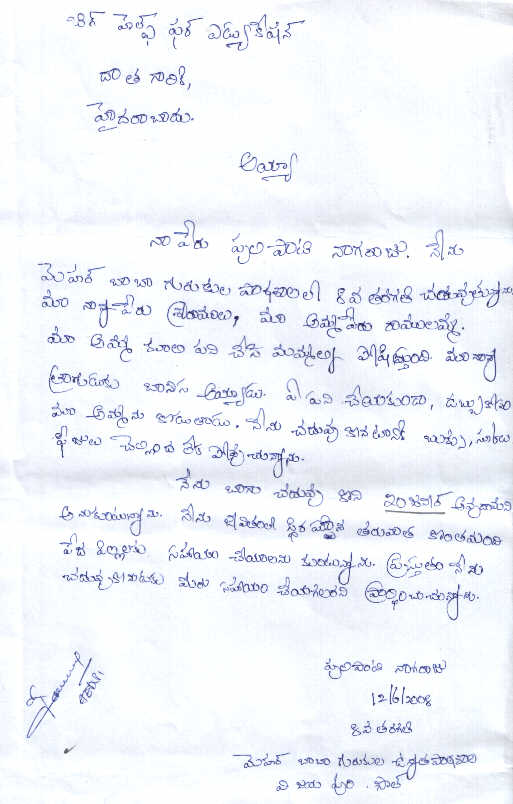 హెల్ప్ ఫర్ ఎడ్యుకేషన్
దాత గారికి,
హైదరాబాదు.
అయ్యా
నా పేరు పులిపాటి నాగరాజు. నేను
మెహర్ బాబా గురుకుల పాఠశాలలో 8వ తరగతి చదువుతున్నాను
మా నాన్న పేరు శ్రీరాములు, మా అమ్మ పేరు రాములమ్మ.
మా అమ్మ కూలి పని చేసి మమ్మల్ని పోషిస్తుంది. మా నాన్న
త్రాగుడుకు బానిస అయ్యాడు. ఏ పని చేయకుండా, డబ్బు కోసం
మా అమ్మను కొడుతాడు. నేను చదువు కొనటానికి బుక్కు,
ఫీజులు చెల్లించ లేక పోవుచున్నాను.
నేను బాగా చదువు కొని ఇంజనీర్ అవ్వాలని
అనుకుంటున్నాను. నేను జీవితంలో స్థిర పడ్డాక తరువాత కొంతమంది
పేద పిల్లలకు సహాయం చేయాలను కుంటున్నాను. ప్రస్తుతం నేను
చదువు కొనుటకు మీరు సహాయం చేయగలరని ప్రార్థించుచున్నాను.
పులిపాటి నాగరాజు
12/6/2008
8వ తరగతి
మెహర్ బాబా గురుకుల ఉన్నత పాఠశాల
విజయ పురి. సౌత్